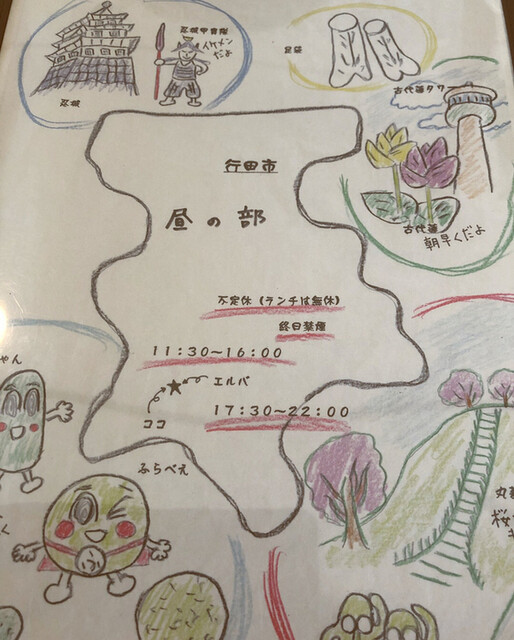 忍城甲冑隊
イケメン
だよ
忍城
足袋
古代蓮タワー
古代蓮
朝早くだよ
行田市
昼の部
不定休(ランチは無休)
終日禁煙
11:30~16:00
エルバ
17:30~22:00
ココ
ゃん
ふらべえ